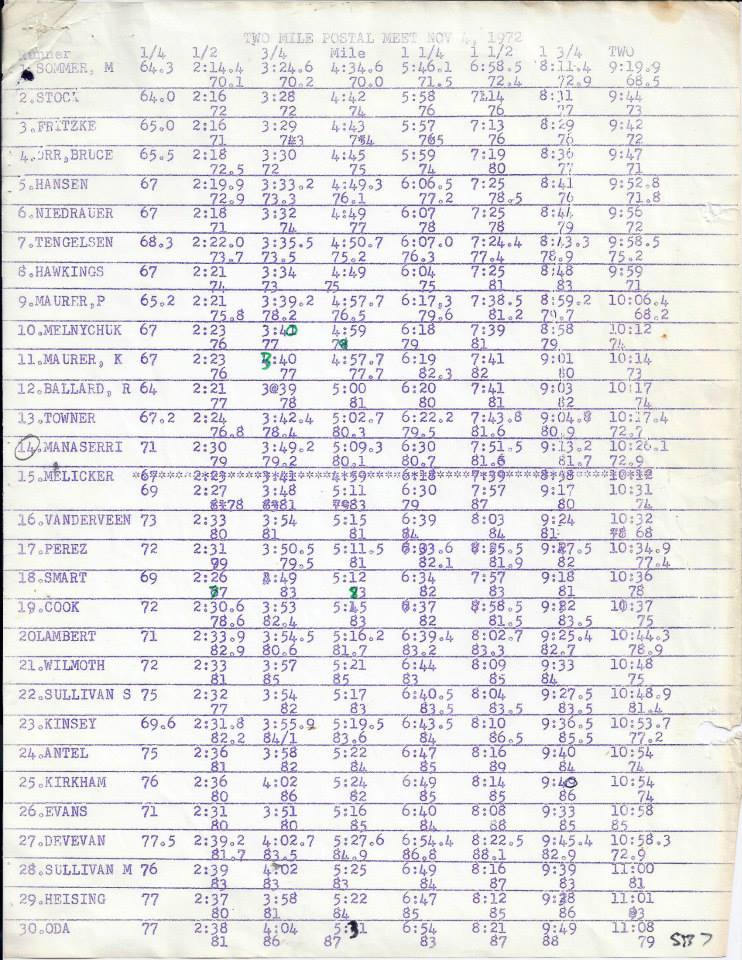 TWO MILE POSTAL MEET NOV 4, 1972
Runner 1/4 1/2 3/4 Mile 1 1/4 1 1/2 1 3/4 TWO
1.SOMMER, M 64.3 2:14.4 3:24.6 4:34.6 5:46.1 6:58.5 8:11.4 9:19.9
70.1 70.2 70.0 71.5 72.4 72.9 68.5
2.STOCK 64.0 2:16 3:28 4:42 5:58 7:14 8:31 9:44
72 72 74 76 76 77 73
3.FRITZKE 65.0 2:16 3:29 4:43 5:57 7:13 8:29 9:42
71 76 76 72
4.ORR,BRUCE 65.5 2:18 3:30 4:45 5:59 7:19 8:36 9:47
72.5 72 75 74 80 77 71
5.HANSEN 67 2:19.9 3:33.2 4:49.3 6:06.5 7:25 8:41 9:52.8
72.9 73.3 76.1 77.2 78.5 76 71.8
6.NIEDRAUER 67 2:18 3:32 4:49 6:07 7:25 8:44 9:56
71 74 77 78 78 79 72
7.TENGELSEN 68.3 2:22.0 3:35.5 4:50.7 6:07.0 7:24.4 8:43.3 9:58.5
73.7 73.5 75.2 76.3 77.4 78.9 75.2
8.HAWKINGS 67 2:21 3:34 4:49 6:04 7:25 8:48 9:59
74 73 75 75 81 83 71
9.MAURER,P 65.2 2:21 3:39.2 4:57.7 6:17.3 7:38.5 8:59.2 10:06.4
75.8 78.2 76.5 79.6 81.2 79.7 68.2
10.MELNYCHUK 67 2:23 3:40 4:59 6:18 7:39 8:58 10:12
76 77 79 79 81 79 74
11.MAURER, K 67 2:23 3:40 4:57.7 6:19 7:41 9:01 10:14
76 77 77.7 82.3 82 80 73
12.BALLARD, R 64 2:21 3@39 5:00 6:20 7:41 9:03 10:17
77 78 81 80 81 82 74
13.TOWNER 67.2 2:24 3:42.4 5:02.7 6:22.2 7:43.8 9:04.8 10:17.4
76.8 78.4 80.3 79.5 81.6 80.9 72.7
14.MANASERRI 71 2:30 3:49.2 5:09.3 6:30 7:51.5 9:13.2 10:26.1
79 79.2 80.1 80.7 81.6 81.7 72.9
15.MELICKER 67 2:23 3:41 4:59 6:18 7:39 8:58 10:12
69 2:27 3:48 5:11 6:30 7:57 9:17 10:31
78 81 83 79 87 80 74
16.VANDERVEEN 73 2:33 3:54 5:15 6:39 8:03 9:24 10:32
80 81 81 84 84 81 68
17.PEREZ 72 2:31 3:50.5 5:11.5 10:34.9
79.5 81 82.1 81.9 82 77.4
18.SMART 69 2:26 3:49 5:12 6:34 7:57 9:18 10:36
83 83 82 83 81 78
19.COOK 72 2:30.6 3:53 5:15 6:37 10:37
78.6 82.4 83 82 81.5 83.5 75
20LAMBERT 71 2:33.9 3:54.5 5:16.2 6:39.4 8:02.7 9:25.4 10:44.3
82.9 80.6 81.7 83.2 83.3 82.7 78.9
21.WILMOTH 72 2:33 3:57 5:21 6:44 8:09 9:33 10:48
81 85 85 83 85 84 75
22.SULLIVAN S 75 2:32 3:54 5:17 6:40.5 8:04 9:27.5 10:48.9
77 82 83 83.5 83.5 83.5 81.4
23.KINSEY 69.6 2:31.8 3:55.9 5:19.5 6:43.5 8:10 9:36.5 10:53.7
82.2 84/1 83.6 84 86.5 85.5 77.2
24.ANTEL 75 2:36 3:58 5:22 6:47 8:16 9:40 10:54
81 82 84 85 89 84 74
25.KIRKHAM 76 2:36 4:02 5:24 6:49 8:14 9:40 10:54
80 86 82 85 85 86 74
26.EVANS 71 2:31 3:51 5:16 6:40 8:08 9:33 10:58
80 80 85 84 88 85 85
27.DEVEVAN 77.5 2:39.2 4:02.7 5:27.6 6:54.4 8:22.5 9:45.4 10:58.3
81.7 83.5 84.9 86.8 88.1 82.9 72.9
28.SULLIVAN M 76 2:39 4:02 5:25 6:49 8:16 9:39 11:00
83 83 83 84 87 83 81
29.HEISING 77 2:37 3:58 5:22 6:47 8:12 9:38 11:01
80 81 84 85 85 86
30.ODA 77 2:38 4:04 5:31 6:54 8:21 9:49 11:08
81 86 87 83 87 88 79